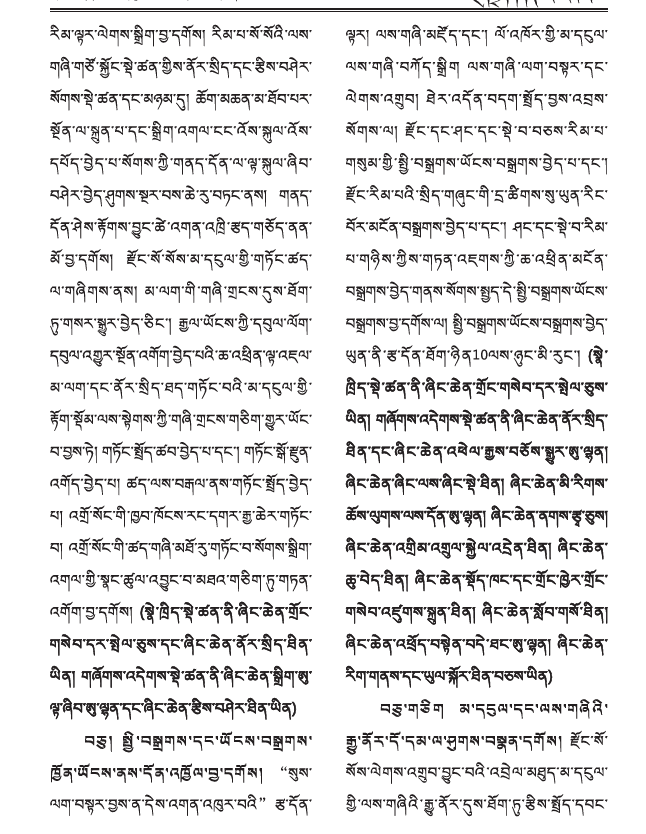 རིམ་ལྟར་ལེགས་སྒྲིག་བྱ་དགོས། རིམ་པ་སོ་སོའི་ལས་
གཞི་གཙོ་སྐྱོང་སྡེ་ཚན་གྱིས་ནོར་སྲིད་དང་རྩིས་བཤེར་
སོགས་སྡེ་ཚན་དང་མཉམ་དུ། ཆོག་མཆན་མ་ཐོབ་པར་
སྔོན་ལ་སྐྲུན་པ་དང་སྒྲིག་འགལ་ངང་འོས་སྐུལ་འོས་
དཔོད་བྱེད་པ་སོགས་ཀྱི་གནད་དོན་ལ་ལྟ་སྐུལ་ཞིབ་
བཤེར་བྱེད་ཤུགས་སྔར་བས་ཆེ་རུ་བཏང་ནས། གནད་
དོན་ཤེས་རྟོགས་བྱུང་ཚེ་འགན་འཁྲི་རྩད་གཅོད་ནན་
མོ་བྱ་དགོས། རྫོང་སོ་སོས་མ་དངུལ་གྱི་གཏོང་ཚད་
ལ་གཞིགས་ནས། མ་ལག་གི་གཞི་གྲངས་དུས་ཐོག་
ཏུ་གསར་སྒྱུར་བྱེད་ཅིང་། རྒྱལ་ཡོངས་ཀྱི་དབུལ་ལོག་
དབུལ་འགྱུར་སྔོན་འགོག་བྱེད་པའི་ཆ་འཕྲིན་ལྟ་འཇལ་
མ་ལག་དང་ནོར་སྲིད་ཐད་གཏོང་བའི་མ་དངུལ་གྱི་
རྟོག་སྡོམ་ལས་སྟེགས་ཀྱི་གཞི་གྲངས་གཅིག་གྱུར་ཡོང་
བ་བྱས་ཏེ། གཏོང་སྤྲོད་ཚབ་བྱེད་པ་དང་། གཏོང་སྒོ་རྫུན་
འགོད་བྱེད་པ། ཚད་ལས་བརྒལ་ནས་གཏོང་སྤྲོད་བྱེད་
པ། འགྲོ་སོང་གི་ཁྱབ་ཁོངས་རང་དགར་རྒྱ་ཆེར་གཏོང་
བ། འགྲོ་སོང་གི་ཚད་གཞི་མཐོ་རུ་གཏོང་བ་སོགས་སྒྲིག་
འགལ་གྱི་སྣང་ཚུལ་འབྱུང་བ་མཐའ་གཅིག་ཏུ་གཏན་
འགོག་བྱ་དགོས། (སྣེ་ཁྲིད་སྡེ་ཚན་ནི་ཞིང་ཆེན་གྲོང་
གསེབ་དར་སྤེལ་ཅུས་དང་ཞིང་ཆེན་ནོར་སྲིད་ཐིན་
ཡིན། གཞོགས་འདེགས་སྡེ་ཚན་ནི་ཞིང་ཆེན་སྒྲིག་ཨུ་
ལྟ་ཞིབ་ཨུ་ལྷན་དང་ཞིང་ཆེན་རྩིས་བཤེར་ཐིན་ཡིན)
བཅུ། སྤྱི་བསྒྲགས་དང་ཡོངས་བསྒྲགས་
ཁྱོན་ཡོངས་ནས་དོན་འཁྱོལ་བྱ་དགོས། “སུས་
ལག་བསྟར་བྱས་ན་དེས་འགན་འཁུར་བའི” རྩ་དོན་
ལྟར། ལས་གཞི་མཛོད་དང་། ལོ་འཁོར་གྱི་མ་དངུལ་
ལས་གཞི་བཀོད་སྒྲིག ལས་གཞི་ལག་བསྟར་དང་
ལེགས་འགྲུབ། ཐེར་འདོན་བདག་སྤྲོད་བྱས་འབྲས་
སོགས་ལ། རྫོང་དང་ཤང་དང་སྡེ་བ་བཅས་རིམ་པ་
གསུམ་གྱི་སྤྱི་བསྒྲགས་ཡོངས་བསྒྲགས་བྱེད་པ་དང་།
རྫོང་རིམ་པའི་སྲིད་གཞུང་གི་དྲ་ཚིགས་སུ་ཡུན་རིང་
བོར་མངོན་བསྒྲགས་བྱེད་པ་དང་། ཤང་དང་སྡེ་བ་རིམ་
པ་གཉིས་ཀྱིས་གཏན་འཇགས་ཀྱི་ཆ་འཕྲིན་མངོན་
བསྒྲགས་བྱེད་གནས་སོགས་སྤྱད་དེ་སྤྱི་བསྒྲགས་ཡོངས་
བསྒྲགས་བྱ་དགོས་ལ། སྤྱི་བསྒྲགས་ཡོངས་བསྒྲགས་བྱེད་
ཡུན་ནི་རྩ་དོན་ཐོག་ཉིན10ལས་ཉུང་མི་རུང་། (སྣེ་
ཁྲིད་སྡེ་ཚན་ནི་ཞིང་ཆེན་གྲོང་གསེབ་དར་སྤེལ་ཅུས་
ཡིན། གཞོགས་འདེགས་སྡེ་ཚན་ནི་ཞིང་ཆེན་ནོར་སྲིད་
ཐིན་དང་ཞིང་ཆེན་འཕེལ་རྒྱས་བཅོས་སྒྱུར་ཨུ་ལྷན།
ཞིང་ཆེན་ཞིང་ལས་ཞིང་སྡེ་ཐིན། ཞིང་ཆེན་མི་རིགས་
ཆོས་ལུགས་ལས་དོན་ཨུ་ལྷན། ཞིང་ཆེན་ནགས་རྩྭ་ཅུས།
ཞིང་ཆེན་འགྲིམ་འགྲུལ་སྐྱེལ་འདྲེན་ཐིན། ཞིང་ཆེན་
ཆུ་བེད་ཐིན། ཞིང་ཆེན་སྡོད་ཁང་དང་གྲོང་ཁྱེར་གྲོང་
གསེབ་འཛུགས་སྐྲུན་ཐིན། ཞིང་ཆེན་སློབ་གསོ་ཐིན།
ཞིང་ཆེན་འཕྲོད་བསྟེན་བདེ་ཐང་ཨུ་ལྷན། ཞིང་ཆེན་
རིག་གནས་དང་ཡུལ་སྐོར་ཐིན་བཅས་ཡིན)
བཅུ་གཅིག མ་དངུལ་དང་ལས་གཞིའི་
རྒྱུ་ནོར་དོ་དམ་ལ་ཤུགས་བསྣན་དགོས། རྫོང་སོ་
སོས་ལེགས་འགྲུབ་བྱུང་བའི་འབྲེལ་མཐུད་མ་དངུལ་
གྱི་ལས་གཞིའི་རྒྱུ་ནོར་དུས་ཐོག་ཏུ་རྩིས་སྤྲོད་དབང་